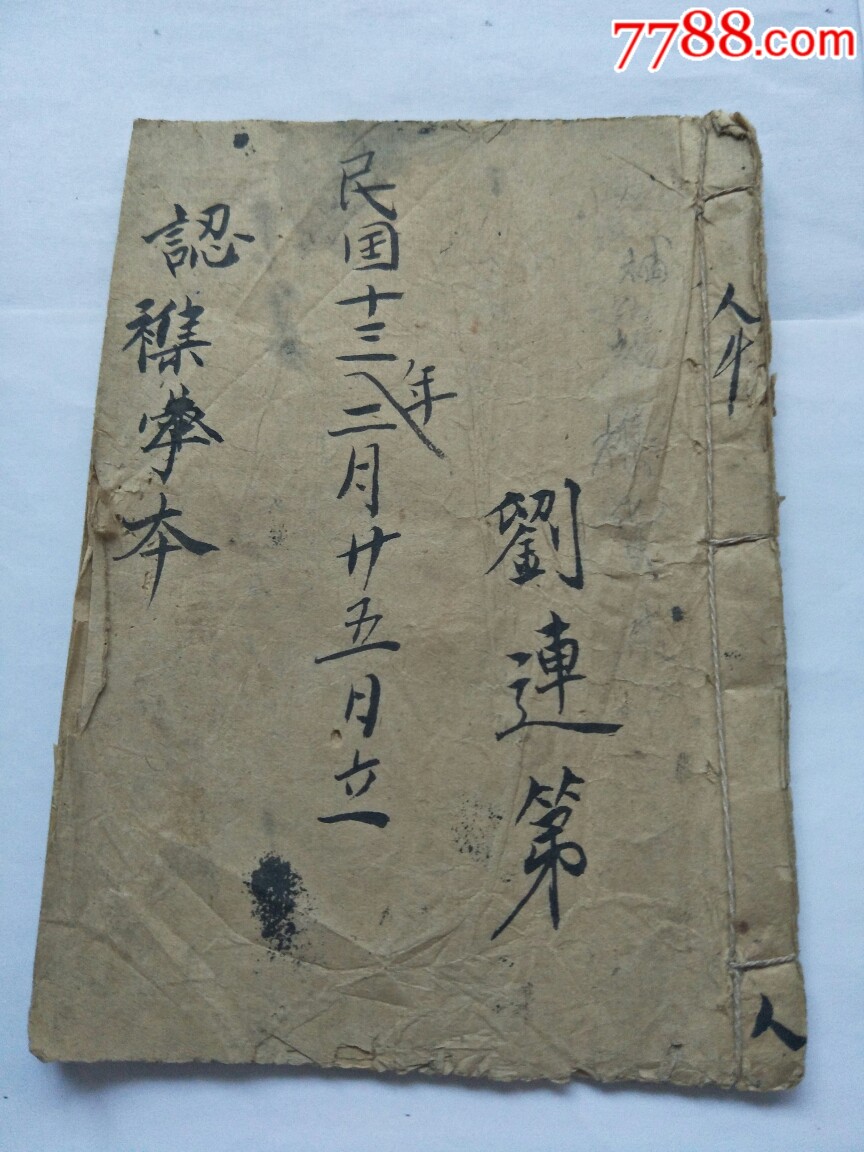 7788.com
人
劉連第
民国十三年二月廿五日立
認襍字本
人